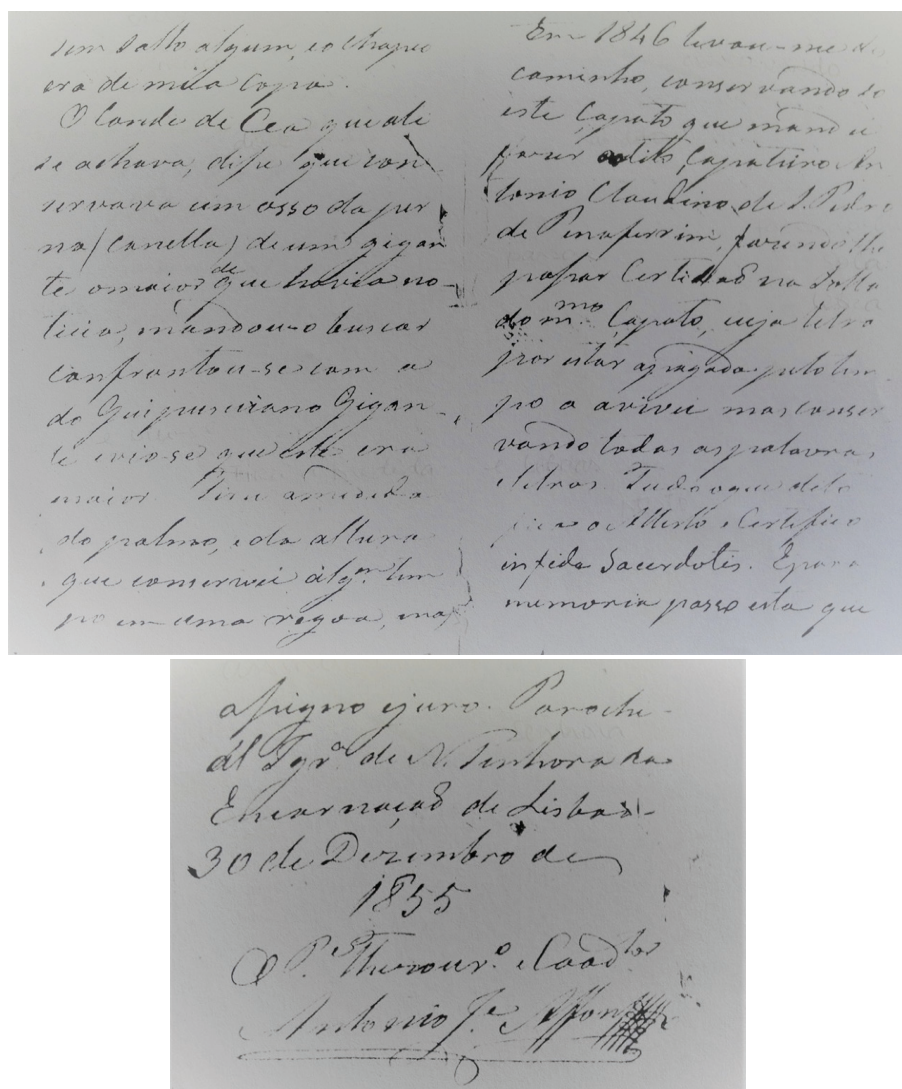 sem salto algum, eo chapeo
era de meia copa.
O Conde de Cea que ali
se achava, disse que con
servava um osso da per
na (canella) de um gigan
te o maior de que havia no-
ticia, mandou-o buscar
confrontou-se com o
do Guipuscuano Gigan-
te evio-se que este era
maior. Tirei a medida
do palmo, e da altura
que conservei alg.m tem
po em uma regoa, mas
Em 1846 levou-me de
caminho, conservando so
este Çapato que mandei
fazer ao dito Çapateiro An
tonio Claudino de S. Pedro
de Penaferrim, fazendo-lhe
passar Certidaõ na Solla
do m.mo Çapato, cuja letra
por estar apagada pelo tem-
po a avivei mas conser
vando todas as palavras
e letras. Tudo o que
Attesto e Certifico
in fide Sacerdotis. E para
memoria passo esta que
assigno e juro. Parochi-
al Igr.a de N. Senhora da
Encarnaçaõ de Lisboa-
30 de Dezembro de
1855
O P.e Thezour.o e Coad.tor
Antonio J.e Affonso